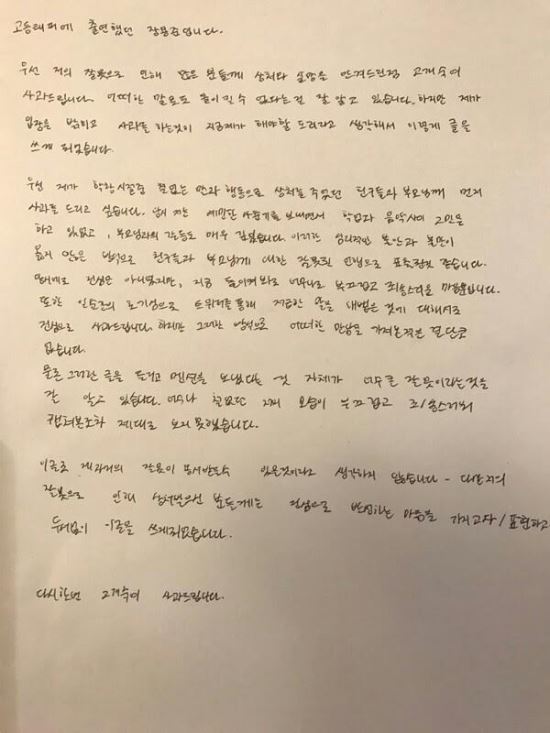 고등래퍼에 출연했던 장용준입니다.
우선 저의 잘못으로 인해 많은 분들께 상처와 실망을 안겨드린점 고개숙여
사과드립니다. 어떠한 말로도 돌이킬 수 없다는걸 잘 알고 있습니다. 하지만 제가
입장을 밝히고 사과를 하는것이 지금제가 해야할 도리라고 생각해서 이렇게 글을
쓰게 되었습니다.
우선 제가 학창시절중 철없는 말과 행동으로 상처를 주었던 친구들과 부모님께 먼저
사과를 드리고 싶습니다. 당시 저는 예민한 사춘기를 보내면서 학업과 음악사이 고민을
하고 있었고, 부모님과의 갈등도 매우 깊었습니다. 이러한 심리적인 불안과 불만이
옳지 않은 방식으로 친구들과 부모님께 대한 잘못된 언행으로 표출된것 같습니다.
절대로 진심은 아니었지만, 지금 돌이켜봐도 너무나도 부끄럽고 죄송스러운 마음뿐입니다.
또한 일순간의 호기심으로 트위터를 통해 저급한 말을 내뱉은 것에 대해서도
진심으로 사과드립니다. 하지만 그러한 방식으로 어떠한 만남을 가져본적은 결단코
없습니다.
물론 그러한 글을 올리고 멘션을 보냈다는 것 자체가 너무 큰 잘못이라는것을
잘 알고 있습니다. 너무나 철없던 저의 모습이 부끄럽고 죄송스러워
캡쳐본조차 제대로 보지 못했습니다.
이글로 제과거의 잘못이 용서받을수 있을것이라고 생각하지 않습니다 - 다만 저의
잘못으로 인해 상처받으신 분들께는 진심으로 반성하는 마음을 가지고자 / 표현하고
두서없이 이글을 쓰게되었습니다.
다시한번 고개숙여 사과드립니다.